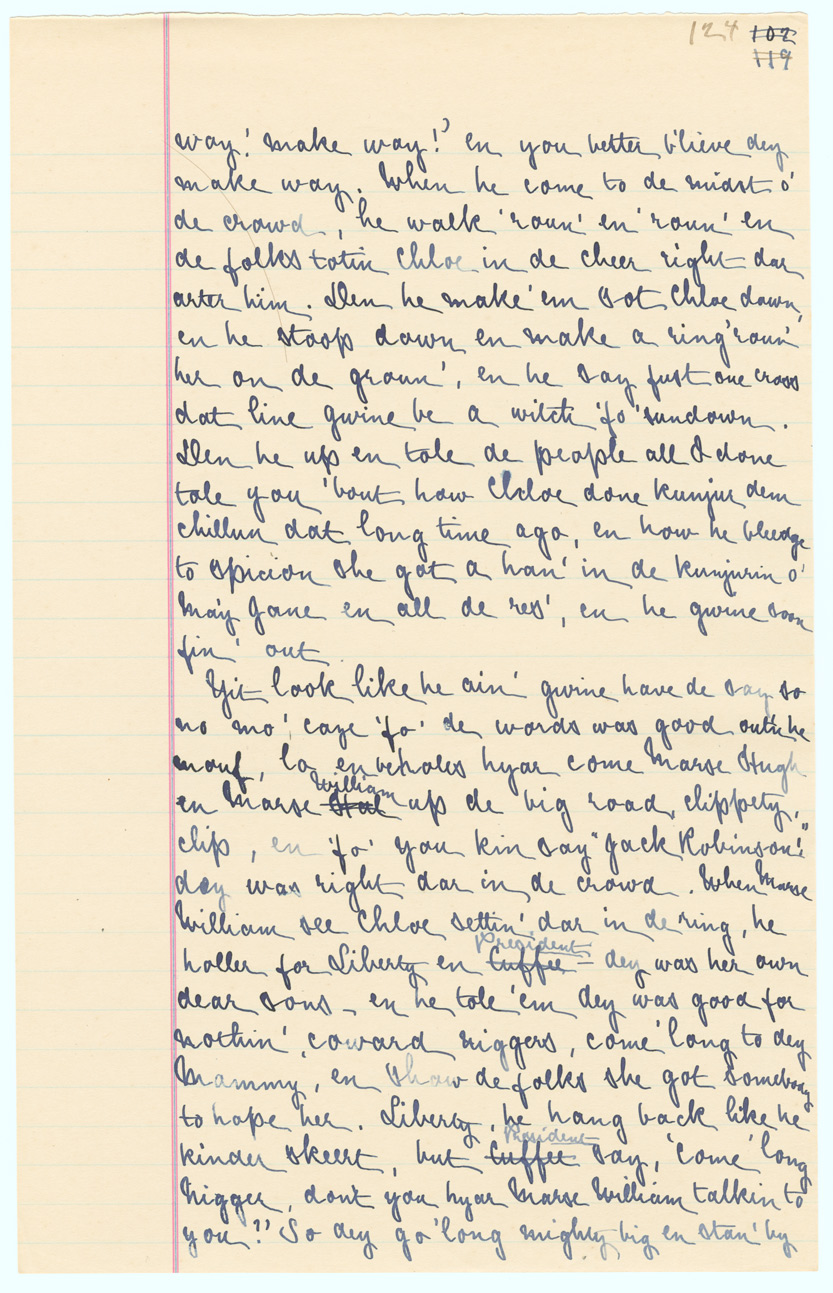 124 102
119
way! make way!' en you better b'lieve dey
make way. When he come to de midst o'
de crowd, he walk 'roun' en 'roun' en
de folks totin Chloe in de cheer right dar
arter him. Den he make 'em sot Chloe down,
en he stoop down en make a ring 'roun'
her on de groun', en he say fust one cross
dat line gwine be a witch 'fo' sundown.
Den he up en tole de people all I done
tole you 'bout how Chloe done kunjur dem
chillun dat long time ago, en how he bleedge
to spicion she got a han' in de kunjurin o'
May Jane en all de res', en he gwine soon
fin' out.
Yit look like he ain' gwine have de say so
no mo', caze 'fo' de words was good out'n he
mouf, lo en beholes hyar come Marse Hugh
William
en Marse Hal up de big road, clippety,
clip, en 'fo' you kin say "Jack Robinson!"
dey was right dar in de crowd. When Marse
William see Chloe settin' dar in de ring, he
President
holler for Liberty en Cuffee – dey was her own
dear sons – en he tole 'em dey was good for
nothin', coward niggers, come 'long to dey
Mammy, en show de folks she got somebody
to hope her. Liberty, he hang back like he
President
kinder skeert, but Cuffee say, 'come 'long
nigger, don't you hyar Marse William talkin to
you?' So dey go 'long mighty big en stan' by